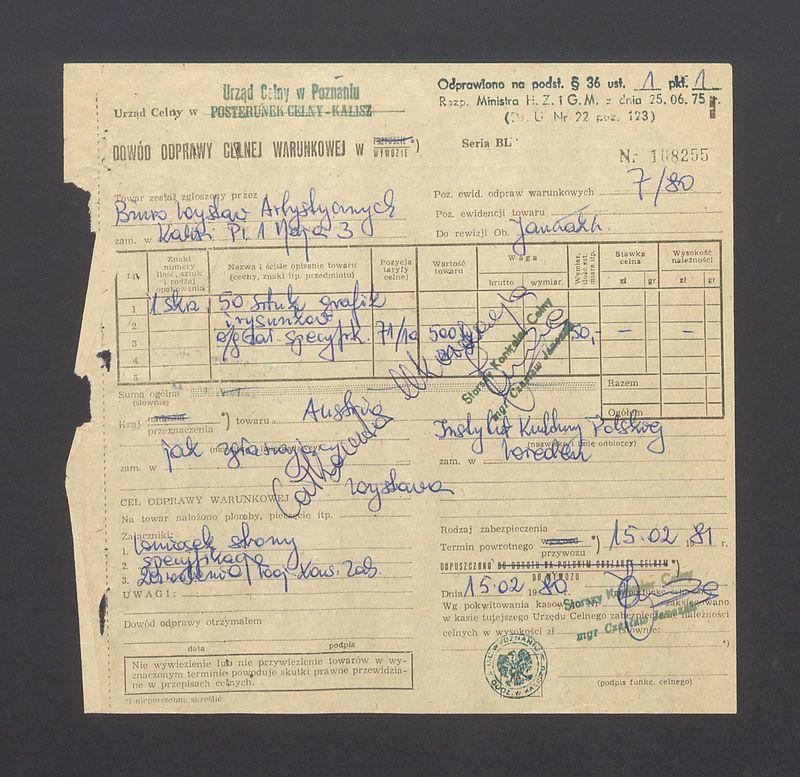 Urząd Celny w Poznaniu
Urząd Celny w POSTERUNEK CELNY - KALISZ
Odprawiono na podst. § 36 ust. 1 pkt. 1
Rozp. Ministra H. Z. i G. M. z dnia 25.06.75 r.
(Dz. U. Nr 22 poz. 123)
DOWÓD ODPRAWY CELNEJ WARUNKOWEJ w PRZYWOZIE WYWOZIE *)
Seria BL
Nr 108255
Towar został zgłoszony przez
Biuro Wystaw Artystycznych
zam. w Kalisz Pl. 1 Maja 3
Poz. ewid. odpraw warunkowych 7/80
Poz. ewidencji towaru
Do rewizji Ob.
L.p. Znaki numery ilość, sztuk i rodzaj opakowania Nazwa i ścisłe opisanie towaru (cechy, znaki itp. przedmiotu) Pozycja taryfy celnej Wartość towaru Waga brutto wymiar. Wymiar, ilość szt. miara itp. Stawka celna zł gr Wysokość należności zł gr
1 1 ska 50 sztuk grafik
2 i rysunków
3 wg zał. specyfik. 71/19 50,- — —
4
5
Całkowita likwidacja
Starszy Kontroler Celny
mgr Czesław
Suma ogólna
(słownie)
Razem
Ogółem
Kraj przeznaczenia *) towaru Austria
jak zgłaszający
(nazwisko i imię odbiorcy)
Instytut Kultury Polskiej
zam. w
zam. w Wiedeń
CEL ODPRAWY WARUNKOWEJ Wystawa
Na towar nałożono plomby, pieczęcie itp.
Załączniki:
1. wniosek strony
2. specyfikacja
3.
UWAGI:
Rodzaj zabezpieczenia
Termin powrotnego przywozu *) 15.02 1981 r.
DOPUSZCZONO DO OBROTU NA POLSKIM OBSZARZE CELNYM *)
DO WYWOZU
Dnia 15.02 1980
Starszy Kontroler Celny
mgr Czesław
Wg pokwitowania kasowego Nr zaksięgowano
w kasie tutejszego Urzędu Celnego zabezpieczenie należności
celnych w wysokości zł słownie:
*)
Dowód odprawy otrzymałem
data podpis
Nie wywiezienie lub nie przywiezienie towarów w wy-
znaczonym terminie powoduje skutki prawne przewidzia-
ne w przepisach celnych.
*) niepotrzebne skreślić
(podpis funkc. celnego)